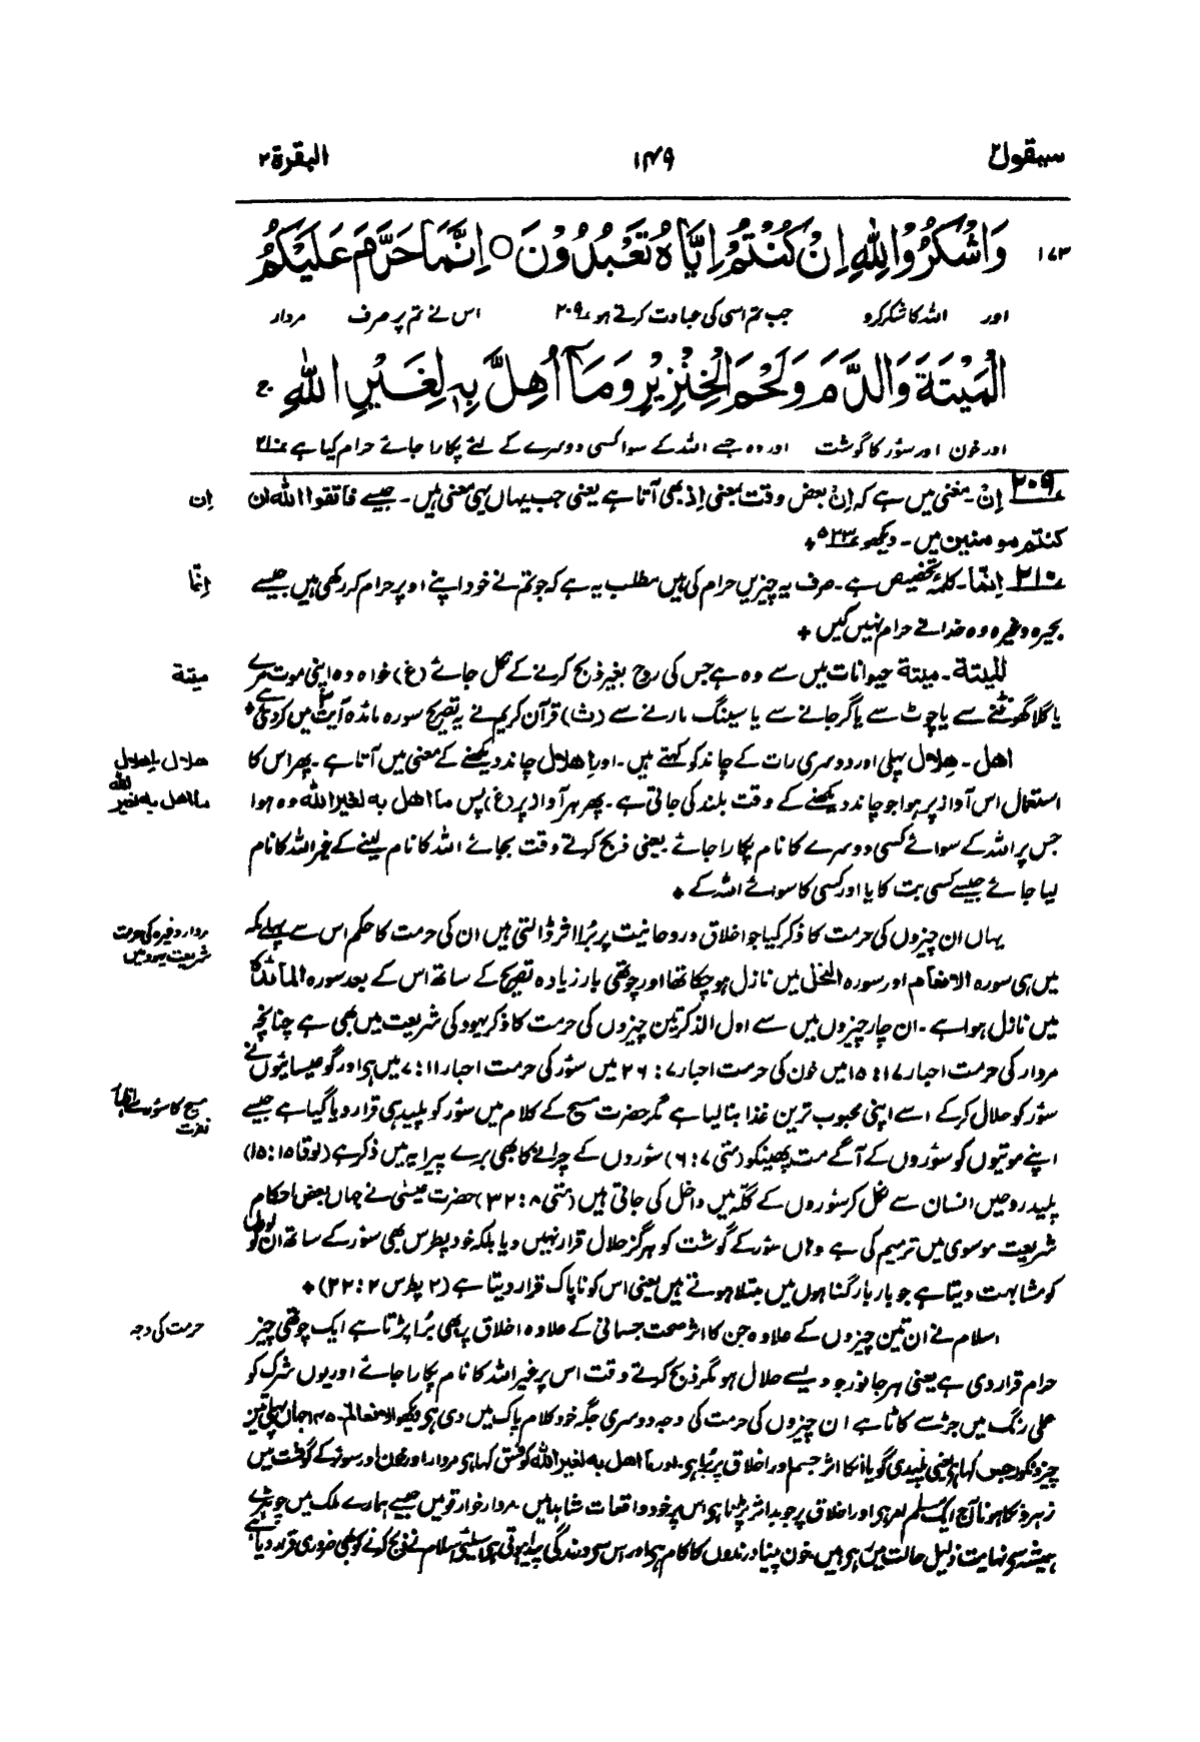 سیقول۲ ۱۴۹ البقرۃ ۲
۱۷۳ وَاشْكُرُوْا لِلّٰهِ اِنْ كُنْتُمْ اِيَّاهُ تَعْبُدُوْنَ ○ اِنَّمَا حَرَّمَ عَلَيْكُمُ
اور اللہ کا شکر کرو جب تم اسی کی عبادت کرتے ہو ۲۰۹ اس نے تم پر صرف مردار
الْمَيْتَةَ وَالدَّمَ وَلَحْمَ الْخِنْزِيْرِ وَمَآ اُهِلَّ بِهٖ لِغَيْرِ اللّٰهِ ۚ
اور خون اور سؤر کا گوشت اور وہ جسے اللہ کے سوا کسی دوسرے کے لئے پکارا جائے حرام کیا ہے ۲۱۰
۲۰۹ اِنْ۔ مغنی میں ہے کہ اِنْ بعض وقت بمعنی اذ بھی آتا ہے یعنی جب یہاں یہی معنی ہیں۔ جیسے فاتقوا اللہ ان
اِن
کنتم مومنین میں۔ دیکھو ۵۳۳ +
۲۱۰ اِنّما۔ کلمۂ تخصیص ہے۔ صرف یہ چیزیں حرام کی ہیں مطلب یہ ہے کہ جو تم نے خود اپنے اوپر حرام کر رکھی ہیں جیسے
اِنّما
بحیرہ وغیرہ وہ خدا نے حرام نہیں کیں +
المیتة۔ میتة حیوانات میں سے وہ ہے جس کی روح بغیر ذبح کرنے کے نکل جائے (غ) خواہ وہ اپنی موت مرے
میتة
یا گلا گھونٹنے سے یا چوٹ سے یا گر جانے سے یا سینگ مارنے سے (ث) قرآن کریم نے یہ تصریح سورہ مائدہ آیت ۳ میں کر دی ہے +
اھل۔ ھلال پہلی اور دوسری رات کے چاند کو کہتے ہیں۔ اور اھلال چاند دیکھنے کے معنی میں آتا ہے۔ پھر اس کا
ھلال اھلال
استعمال اس آواز پر ہوا جو چاند دیکھنے کے وقت بلند کی جاتی ہے۔ پھر ہر آواز پر (غ) پس ما اھل بہ لغیر اللہ وہ ہوا
ما اھل بہ لغیر اللہ
جس پر اللہ کے سوائے کسی دوسرے کا نام پکارا جائے یعنی ذبح کرتے وقت بجائے اللہ کا نام لینے کے غیر اللہ کا نام
لیا جائے جیسے کسی بت کا یا اور کسی کا سوائے اللہ کے +
یہاں ان چیزوں کی حرمت کا ذکر کیا جو اخلاق و روحانیت پر بُرا اثر ڈالتی ہیں ان کی حرمت کا حکم اس سے پہلے مکہ
مردار وغیرہ کی حرمت شریعت یہود میں
میں ہی سورہ الانعام اور سورہ النحل میں نازل ہو چکا تھا اور چوتھی بار زیادہ تصریح کے ساتھ اس کے بعد سورہ المائدۃ
میں نازل ہوا ہے۔ ان چار چیزوں میں سے اول الذکر تین چیزوں کی حرمت کا ذکر یہود کی شریعت میں بھی ہے چنانچہ
مردار کی حرمت احبار ۱۷: ۱۵ میں خون کی حرمت احبار ۷: ۲۶ میں سؤر کی حرمت احبار ۱۱: ۷ میں ہے اور گو عیسائیوں نے
سؤر کو حلال کر کے اسے اپنی محبوب ترین غذا بنا لیا ہے مگر حضرت مسیح کے کلام میں سؤر کو پلید ہی قرار دیا گیا ہے جیسے
مسیح کا سؤر سے اظہار نفرت
اپنے موتیوں کو سؤروں کے آگے مت پھینکو (متی ۷: ۶) سؤروں کے چرانے کا بھی برے پیرایہ میں ذکر ہے (لوقا ۱۵: ۱۵)
پلید روحیں انسان سے نکل کر سؤروں کے گلّہ میں داخل کی جاتی ہیں (متی ۸: ۳۲) حضرت عیسیٰ نے جہاں بعض احکام
شریعت موسوی میں ترمیم کی ہے وہاں سؤر کے گوشت کو ہرگز حلال قرار نہیں دیا بلکہ خود پطرس بھی سؤر کے ساتھ ان لوگوں
کو مشابہت دیتا ہے جو بار بار گناہوں میں مبتلا ہوتے ہیں یعنی اس کو ناپاک قرار دیتا ہے (۲ پطرس ۲: ۲۲) +
اسلام نے ان تین چیزوں کے علاوہ جن کا اثر صحت جسمانی کے علاوہ اخلاق پر بھی بُرا پڑتا ہے ایک چوتھی چیز
حرمت کی وجہ
حرام قرار دی ہے یعنی ہر جانور جو ویسے حلال ہو مگر ذبح کرتے وقت اس پر غیر اللہ کا نام پکارا جائے اور یوں شرک کو
عملی رنگ میں جڑ سے کاٹا ہے ان چیزوں کی حرمت کی وجہ دوسری جگہ خود کلام پاک میں دی ہے دیکھو الانعام ۱۴۵ جہاں پہلی تین
چیزوں کو رجس کہا ہے یعنی پلیدی گویا ان کا اثر جسم اور اخلاق پر بُرا ہے۔ اور ما اھل بہ لغیر اللہ کو فسق کہا ہے مردار اور خون اور سؤر کے گوشت میں
زہروں کا ہونا آج ایک مسلم امر ہے اور اخلاق پر جو بد اثر پڑتا ہے اس پر خود واقعات شاہد ہیں۔ مردار خوار قومیں جیسے ہمارے ملک میں چوہڑے
ہمیشہ سے نہایت ذلیل حالت میں رہی ہیں۔ خون پینا درندوں کا کام ہے اور اس سے درندگی پیدا ہوتی ہے اسی لئے اسلام نے ذبح کرنے کو بھی ضروری قرار دیا ہے